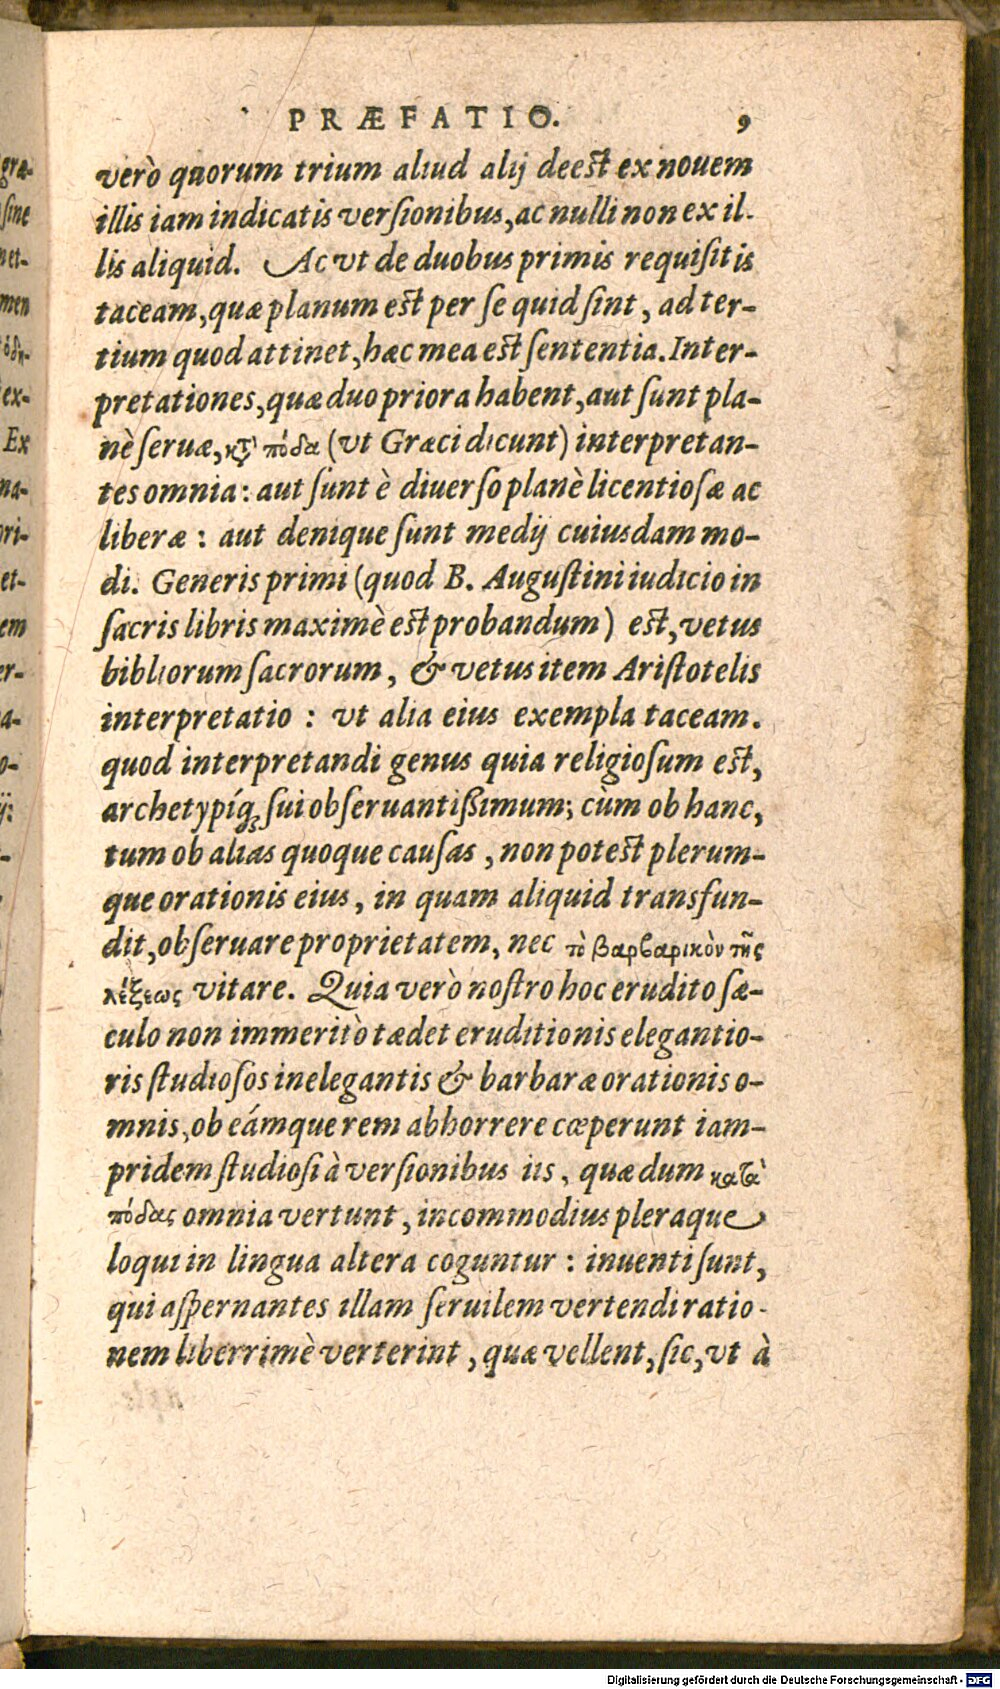 PRÆFATIO. 9
verò quorum trium aliud alij deest ex nouem
illis iam indicatis versionibus, ac nulli non ex il-
lis aliquid. Ac vt de duobus primis requisitis
taceam, quæ planum est per se quid sint, ad ter-
tium quod attinet, hæc mea est sententia. Inter-
pretationes, quæ duo priora habent, aut sunt pla-
nè seruæ, κτ̀ πόδα (vt Græci dicunt) interpretan-
tes omnia: aut sunt è diuerso planè licentiosæ ac
liberæ: aut denique sunt medij cuiusdam mo-
di. Generis primi (quod B. Augustini iudicio in
sacris libris maximè est probandum) est, vetus
bibliorum sacrorum, & vetus item Aristotelis
interpretatio: vt alia eius exempla taceam.
quod interpretandi genus quia religiosum est,
archetypíq; sui obseruantißimum; cùm ob hanc,
tum ob alias quoque causas, non potest plerum-
que orationis eius, in quam aliquid transfun-
dit, obseruare proprietatem, nec τὸ βαρβαρικὸν τῆς
λέξεως vitare. Quia verò nostro hoc erudito sæ-
culo non immeritò tædet eruditionis elegantio-
ris studiosos inelegantis & barbaræ orationis o-
mnis, ob eámque rem abhorrere cœperunt iam-
pridem studiosi à versionibus iis, quæ dum κατὰ
πόδας omnia vertunt, incommodius pleraque
loqui in lingua altera coguntur: inuenti sunt,
qui aspernantes illam seruilem vertendi ratio-
nem liberrimè verterint, quæ vellent, sic, vt à
Digitalisierung gefördert durch die Deutsche Forschungsgemeinschaft - DFG